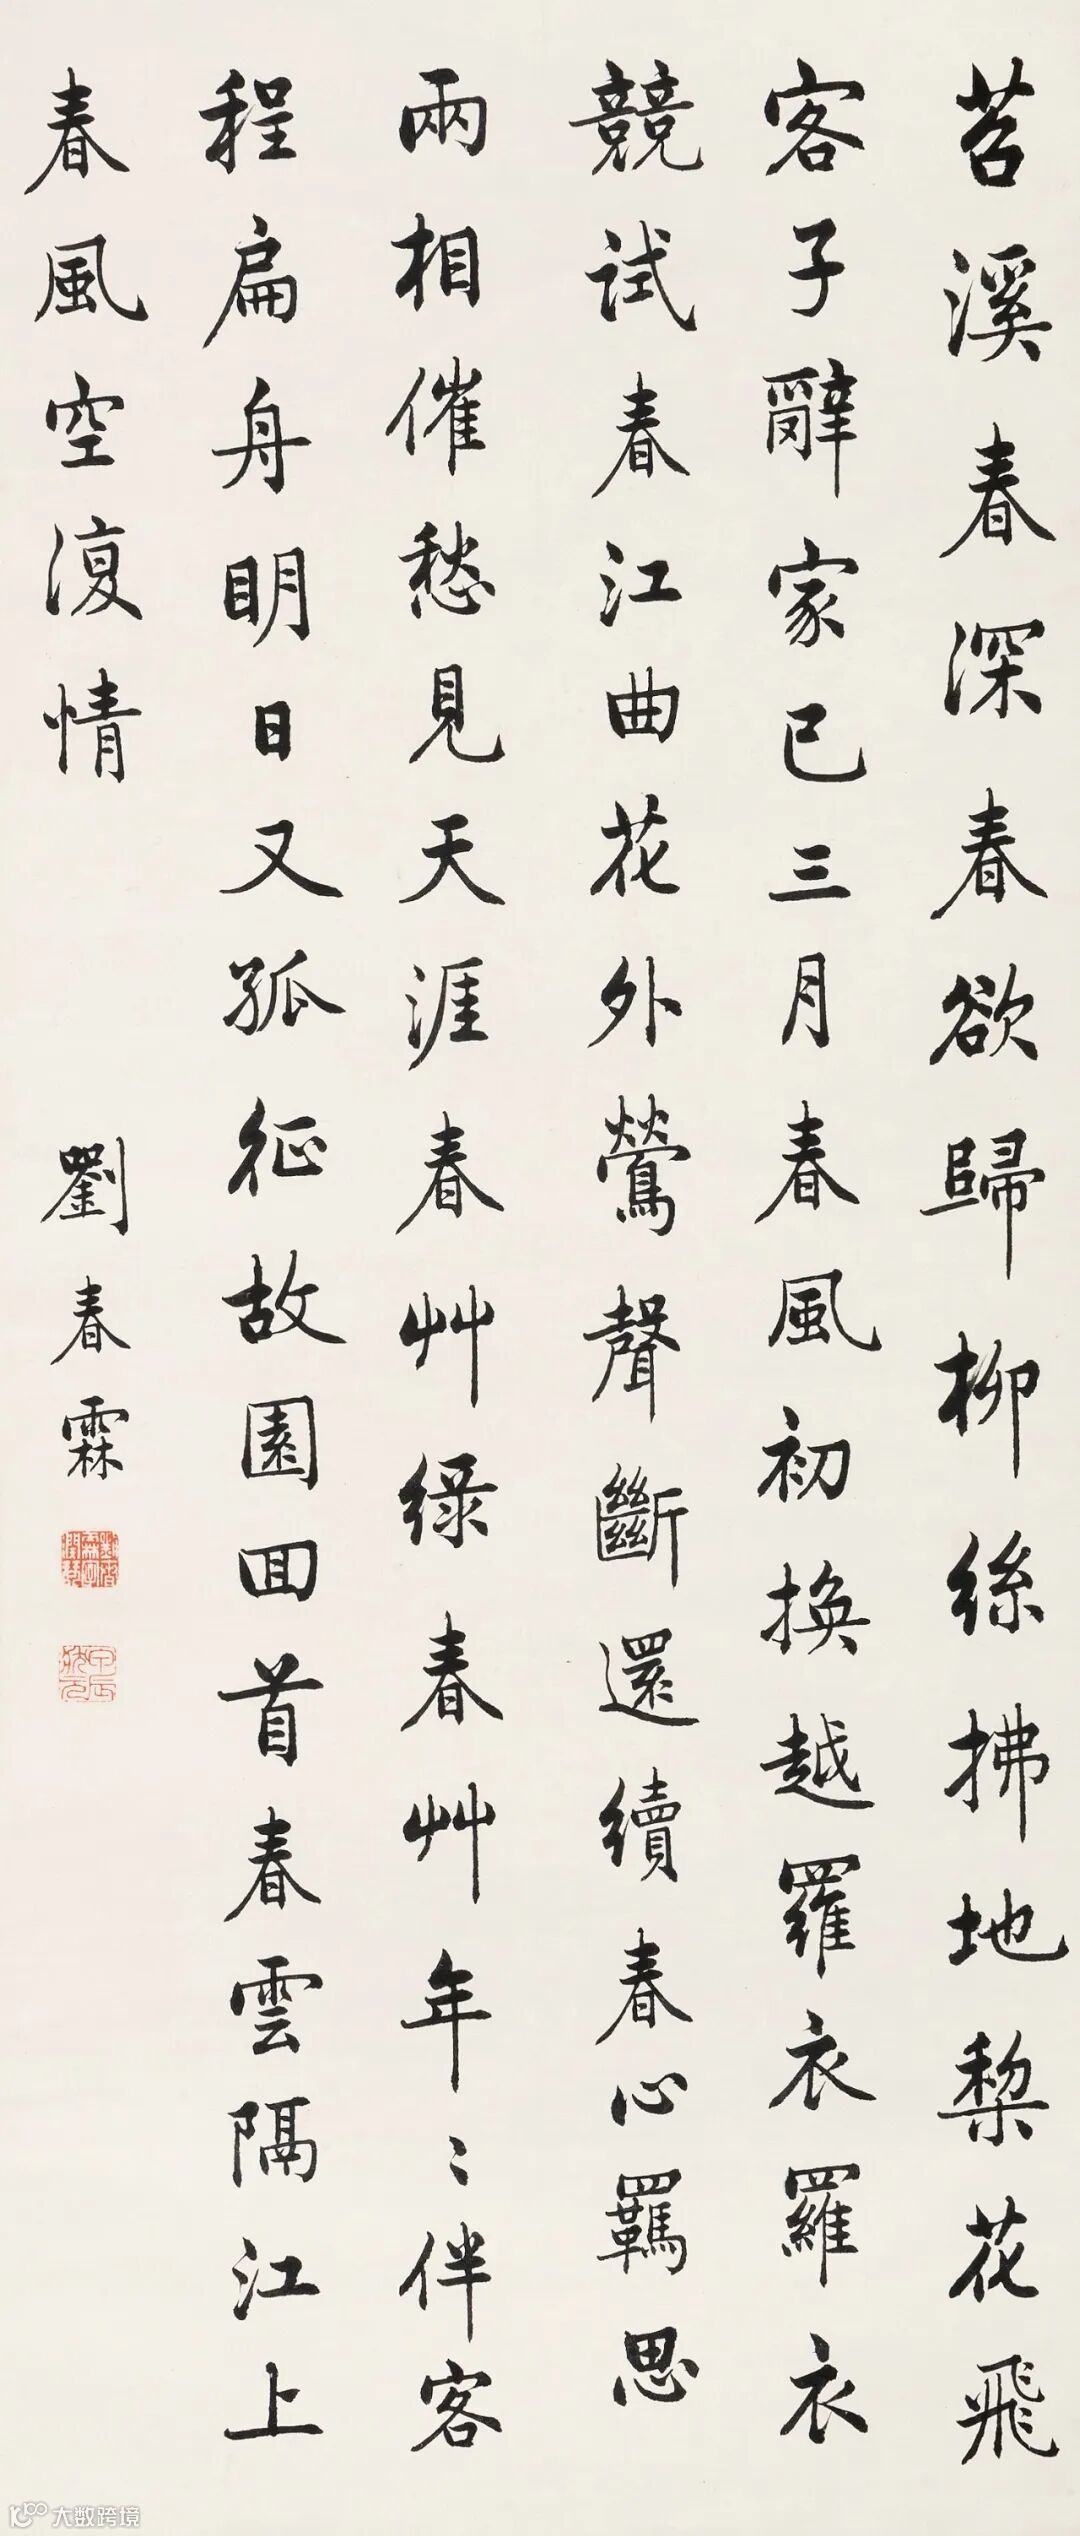 苕溪春深春欲歸柳絲拂地棃花飛
客子辭家已三月春風初換越羅衣羅衣
競試春江曲花外鶯聲斷還續春心羈思
兩相催愁見天涯春艸綠春艸年〻伴客
程扁舟明日又孤征故園回首春雲隔江上
春風空復情
劉春霖
大数跨境